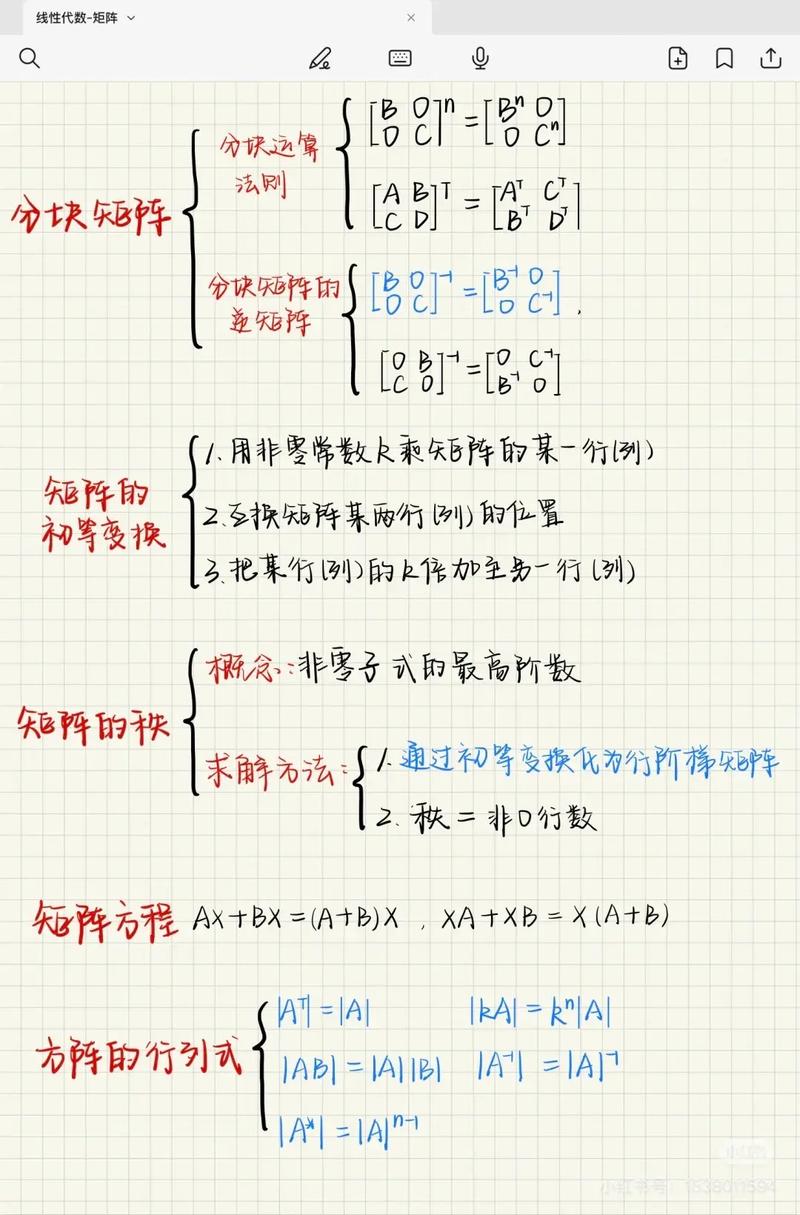 线性代数-矩阵
分块矩阵
分块运算
法则
[B O
O C]ⁿ = [Bⁿ O
O Cⁿ]
[A B
C D]ᵀ = [Aᵀ Cᵀ
Bᵀ Dᵀ]
分块矩阵的
逆矩阵
[B O
O C]⁻¹ = [B⁻¹ O
O C⁻¹] ,
[O B
C O]⁻¹ = [O C⁻¹
B⁻¹ O]
矩阵的
初等变换
1.用非零常数k乘矩阵的某一行(列)
2.互换矩阵某两行(列)的位置
3.把某行(列)的k倍加至另一行(列)
矩阵的秩
概念:非零子式的最高阶数
求解方法:
1.通过初等变换化为行阶梯矩阵
2.秩=非0行数
矩阵方程 AX+BX=(A+B)X , XA+XB=X(A+B)
方阵的行列式
|Aᵀ|=|A| |kA|=kⁿ|A|
|AB|=|A||B| |A⁻¹|=|A|⁻¹
|A*|=|A|ⁿ⁻¹
小红书
小红书号:1538011594